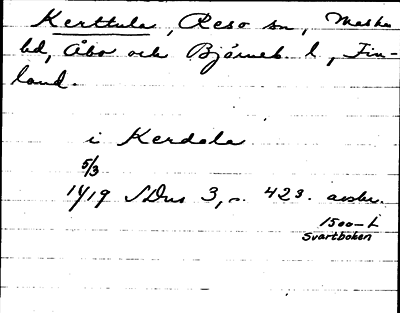 Kerttula, Reso sn, Masku
hd, Åbo och Björneb. l, Fin-
land.
i Kerdala
5/3
1419 SDns 3, 423. avskr.
1500-t
Svartboken